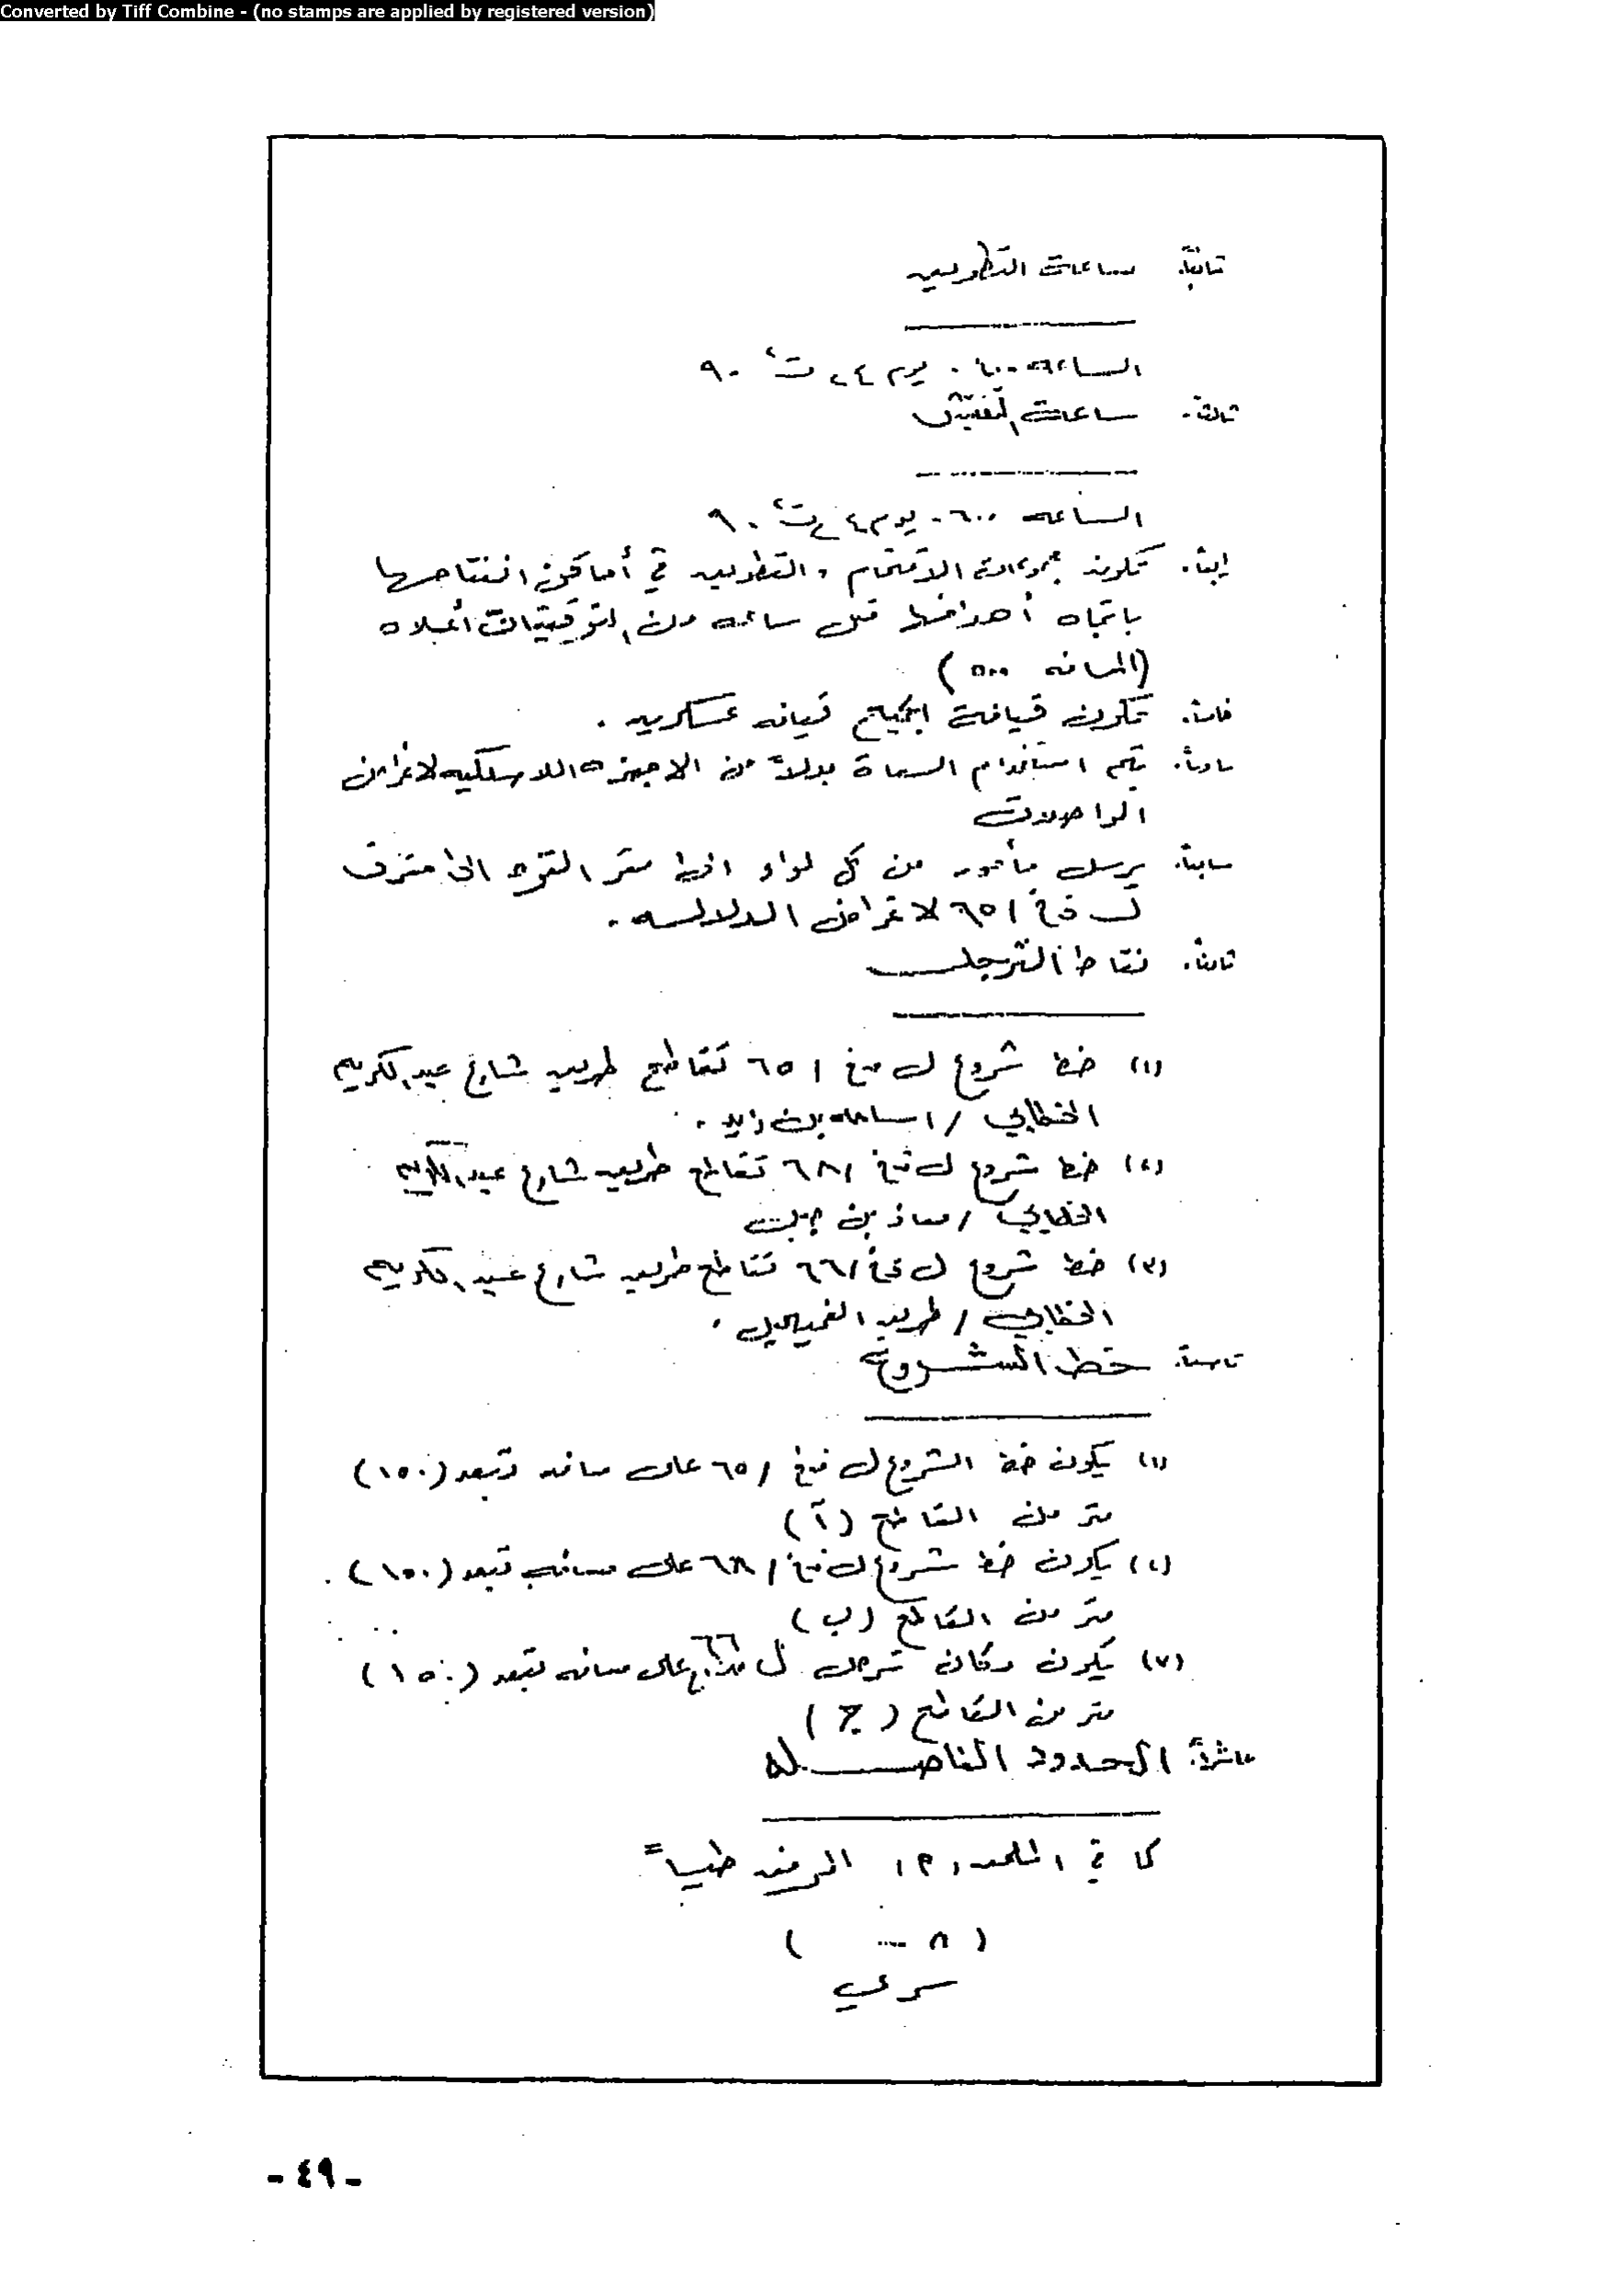 Converted by Tiff Combine - (no stamps are applied by registered version)
ثانياً. ساعات التطويق
الساعة ٠٦٠٠ يوم ٢٤ ت٢ ٩٠
ثالثاً. ساعات التفتيش
الساعه ٠٦٠٠ يوم ٢٤ ت٢ ٩٠
رابعاً. تكون مجموعات الاقتحام والتطويق في أماكن انفتاحها
باتجاه أهدافها قبل ساعه من التوقيتات أعلاه
(المسافه ٥٠٠)
خامساً. تكون قيافة الجميع قيافه عسكريه.
سادساً. يتم استخدام السعاة بدلاً من الاجهزه اللاسلكيه لاغراض
المواصلات
سابعاً. يرسل مأمور من كل لواء الى مقر القوه الى متفرق
ل ق خ / ٦٥ لاغراض الدلاله.
ثامناً. نقاط الترجل
(١) خط شروع ل ق خ / ٦٥ تقاطع طريق شارع عبد الكريم
الخطابي / اسامه بن زايد.
(٢) خط شروع ل ق خ / ٦٨ تقاطع طريق شارع عبد الكريم
الخطابي / معاذ بن جبل
(٣) خط شروع ل ق خ / ٦٦ تقاطع طريق شارع عبد الكريم
الخطابي / طريق الفحيحيل.
تاسعاً. خط الشروع
(١) يكون خط الشروع ل ق خ / ٦٥ على مسافه تبعد (١٥٠)
متر من القاطع (أ)
(٢) يكون خط شروع ل ق خ / ٦٨ على مسافه تبعد (١٥٠).
متر من القاطع (ب)
(٣) يكون مكان ترجل ل ق خ / ٦٦ على مسافه تبعد (١٥٠)
متر من القاطع (ج)
عاشراً. الحدود الفاصله
كما في الملحق (٢) المرفق طياً
( ٨ ... )
سري
- ٤٩ -